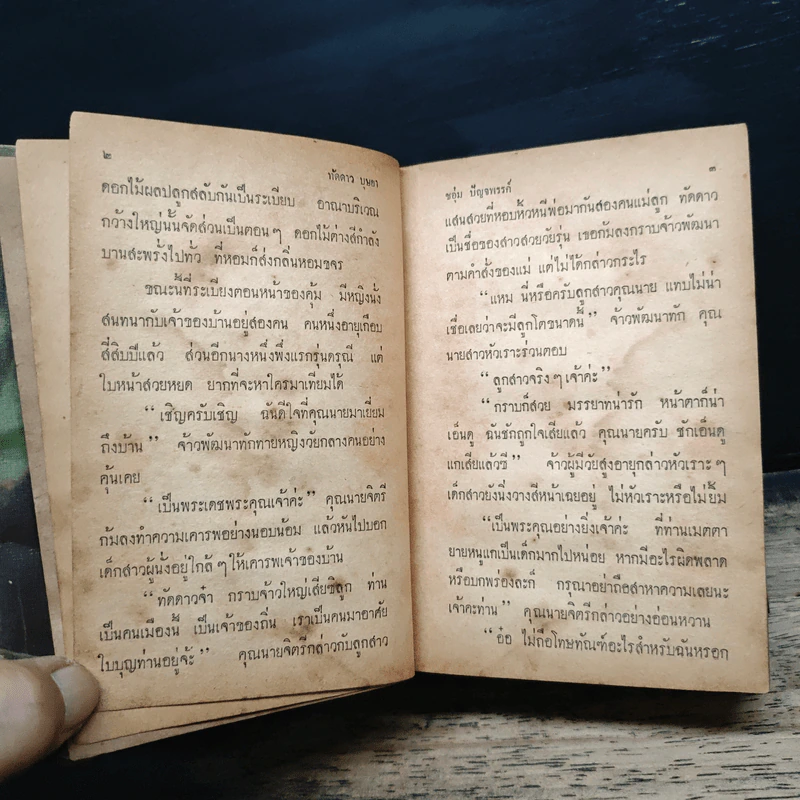 ๒
ทัดดาว บุษยา
ดอกไม้ผลปลูกสลับกันเป็นระเบียบ อาณาบริเวณ
กว้างใหญ่นั้นจัดส่วนเป็นตอนๆ ดอกไม้ต่างสีกำลัง
บานสะพรั่งไปทั่ว ที่หอมก็ส่งกลิ่นหอมขจร
ขณะนี้ที่ระเบียงตอนหน้าของคุ้ม มีหญิงนั่ง
สนทนากับเจ้าของบ้านอยู่สองคน คนหนึ่งอายุเกือบ
สี่สิบปีแล้ว ส่วนอีกนางหนึ่งพึ่งแรกรุ่นดรุณี แต่
ใบหน้าสวยหยด ยากที่จะหาใครมาเทียมได้
“เชิญครับเชิญ ฉันดีใจที่คุณนายมาเยี่ยม
ถึงบ้าน” จ้าวพัฒนาทักทายหญิงวัยกลางคนอย่าง
คุ้นเคย
“เป็นพระเดชพระคุณเจ้าค่ะ” คุณนายจิตรี
ก้มลงทำความเคารพอย่างนอบน้อม แล้วหันไปบอก
เด็กสาวผู้นั่งอยู่ใกล้ๆให้เคารพเจ้าของบ้าน
“ทัดดาวจ๋า กราบจ้าวใหญ่เสียซิลูก ท่าน
เป็นคนเมืองนี้ เป็นเจ้าของถิ่น เราเป็นคนมาอาศัย
ใบบุญท่านอยู่จ้ะ” คุณนายจิตรีกล่าวกับลูกสาว
ชอุ่ม ปัญจพรรค์
๓
แสนสวยที่หอบหิ้วหนีพ่อมากันสองคนแม่ลูก ทัดดาว
เป็นชื่อของสาวสวยวัยรุ่น เธอก้มลงกราบจ้าวพัฒนา
ตามคำสั่งของแม่ แต่ไม่ได้กล่าวกระไร
“แหม นี่หรือครับลูกสาวคุณนาย แทบไม่น่า
เชื่อเลยว่าจะมีลูกโตขนาดนี้” จ้าวพัฒนาทัก คุณ
นายสาวหัวเราะร่วนตอบ
“ลูกสาวจริงๆเจ้าค่ะ”
“กราบก็สวย มรรยาทน่ารัก หน้าตาก็น่า
เอ็นดู ฉันชักถูกใจเสียแล้ว คุณนายครับ ชักเอ็นดู
แกเสียแล้วซี” จ้าวผู้มีวัยสูงอายุกล่าวหัวเราะๆ
เด็กสาวยังนิ่งวางสีหน้าเฉยอยู่ ไม่หัวเราะหรือไม่ยิ้ม
“เป็นพระคุณอย่างยิ่งเจ้าค่ะ ที่ท่านเมตตา
ยายหนูแกเป็นเด็กมากไปหน่อย หากมีอะไรผิดพลาด
หรือบกพร่องละก็ กรุณาอย่าถือสาหาความเลยนะ
เจ้าคะท่าน” คุณนายจิตรีกล่าวอย่างอ่อนหวาน
“อ๋อ ไม่ถือโทษทัณฑ์อะไรสำหรับฉันหรอก